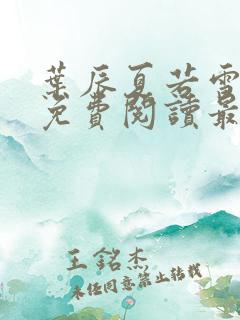 葉辰夏若雪
免費閱讀最
王銘杰
未经同意禁止转载